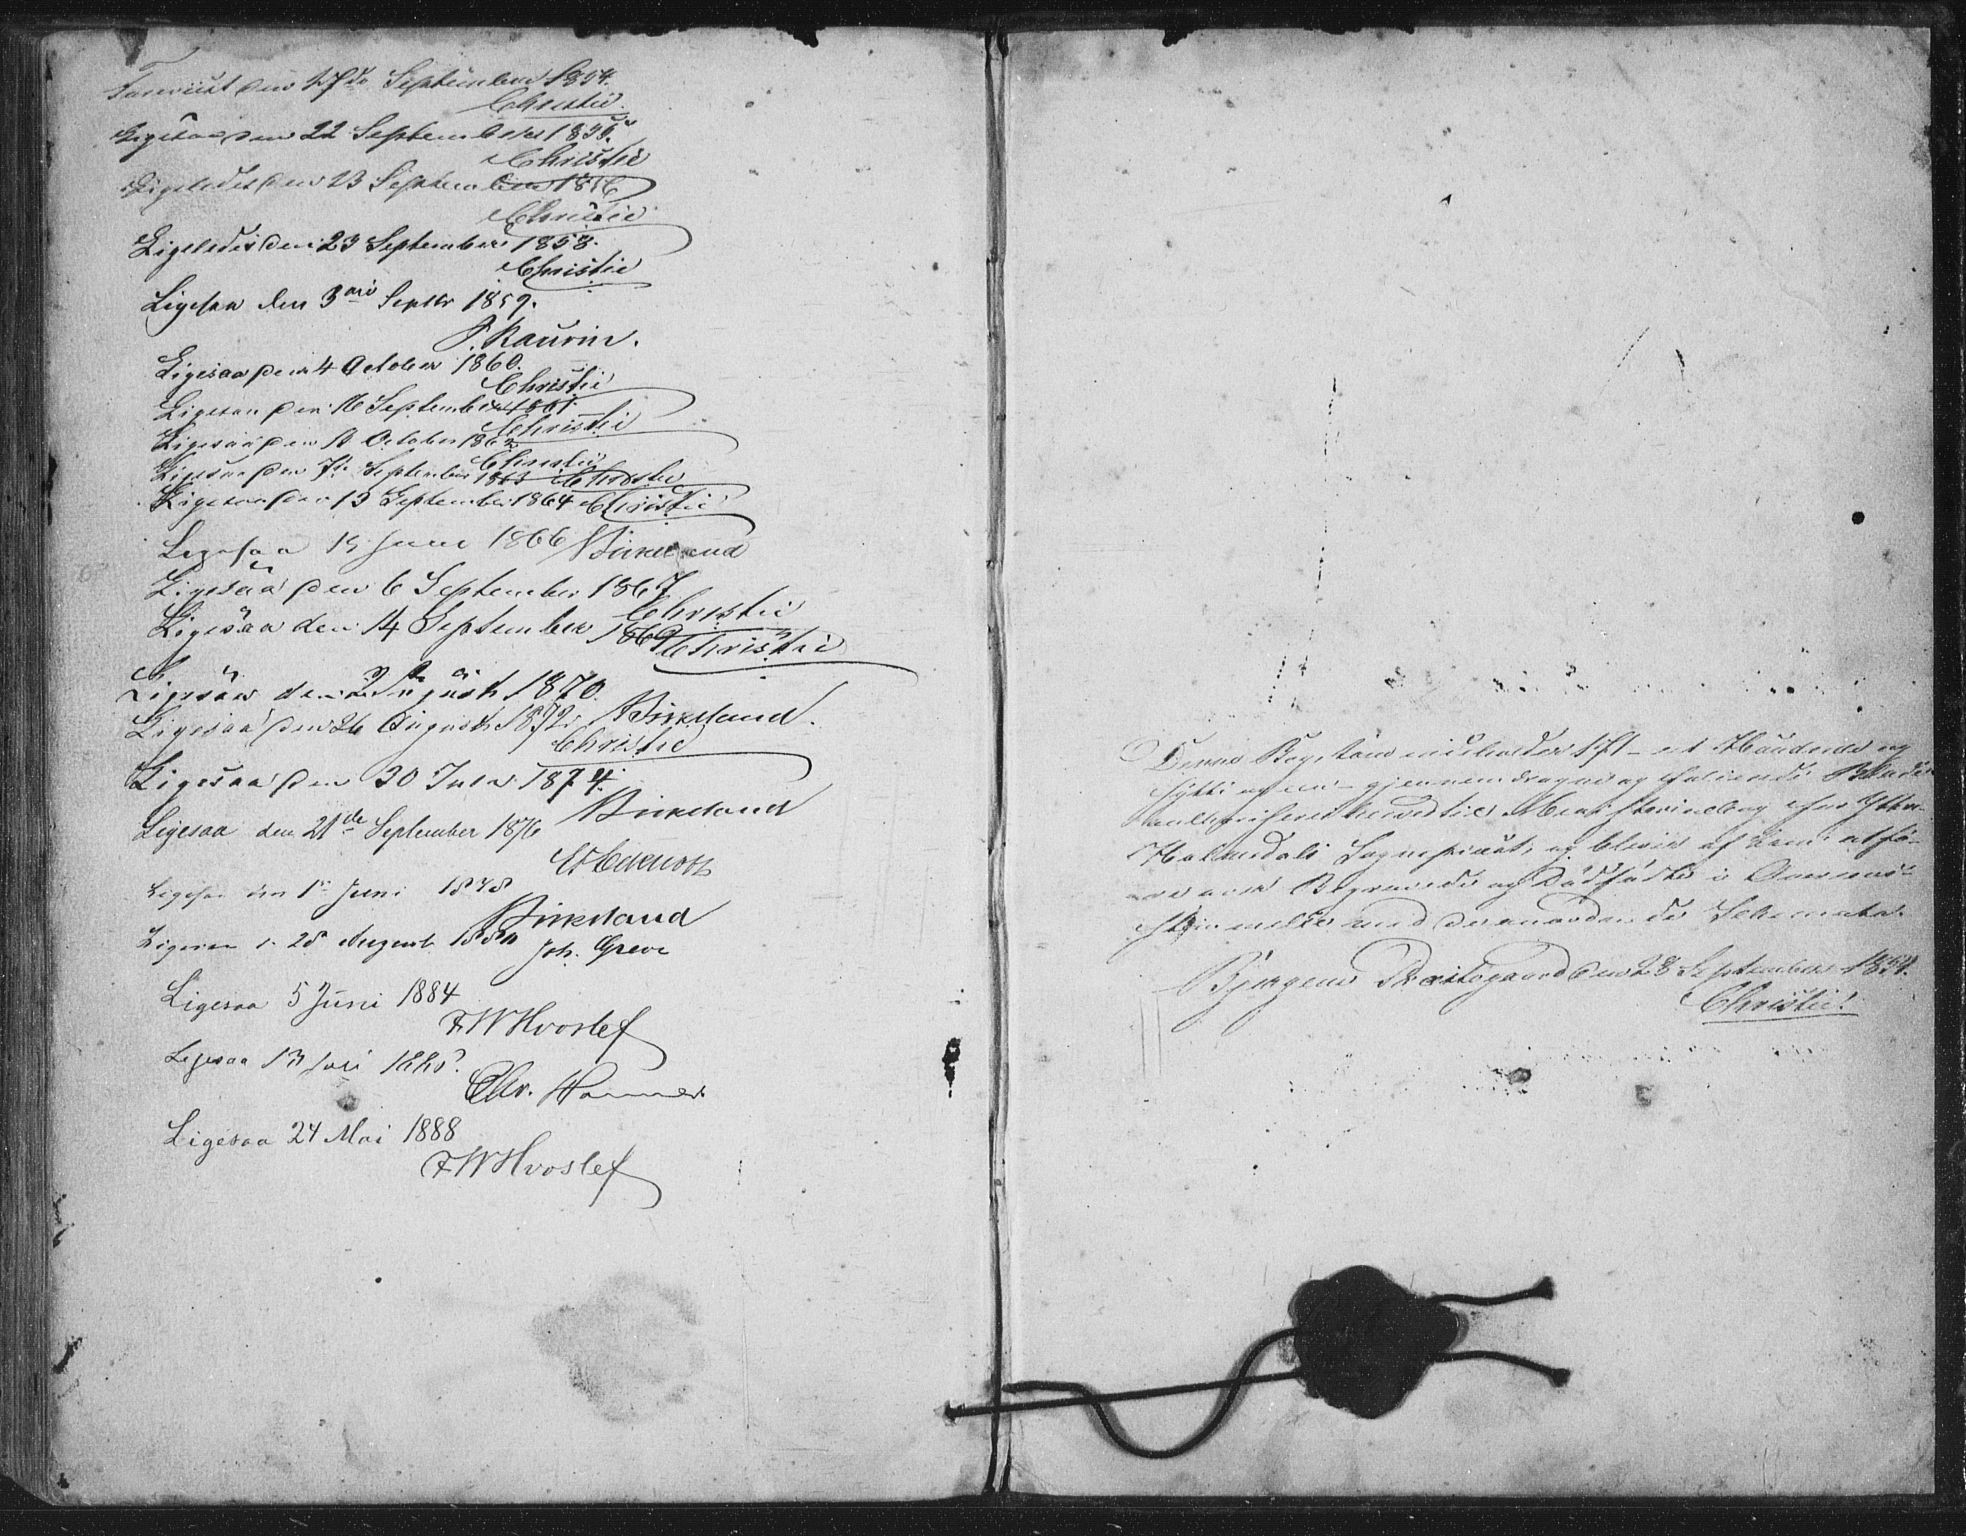 Foreviist den September 1854.
Christie.
Ligesaa den 22 September 1855.
Christie
Ligeledes den 23 September 1856
Christie
Ligeledes den 23 September 1858.
Christie
Ligesaa den 3die Septbr 1859.
Kaurin.
Ligesaa den 4 October 1860.
Christie
Ligesaa den 16 September 1861.
Christie
Ligesaa den October 1862
Christie
Ligesaa den 7de September 1863 Christie
Ligesaa den 13 September 1864 Christie
Ligesaa 15 Juni 1866 Birkeland
Ligesaa den 6 September 1867
Christie
Ligesaa den 14 September 1869 Christie
Ligesaa den 2 August 1870.
Birkeland.
Ligesaa den 26 August 1872.
Christie
Ligesaa den 30 Juli 1874.
Birkeland
Ligesaa den 21de September 1876
Ligesaa den 1ste Juni 1878
Birkeland
Ligesaa d. 28 August 1880
Joh. Greve
Ligesaa 5 Juni 1884
F W Hvoslef
Ligesaa 13 Juli
Chr.
Ligesaa 24 Mai 1888
F W Hvoslef
Denne Bog, som indeholder 171 - et Hundrede og
Sytti og een - gjennemdragne og Blade
Ministerialbog for Ytter
Holmedals Sognepræst, og bliver af ham at fø-
re over Begravede og Dødfødte i Overeens-
stemmelse med de anordnede Schemata.
Præstegaard den 28 September 1854.
Christie.